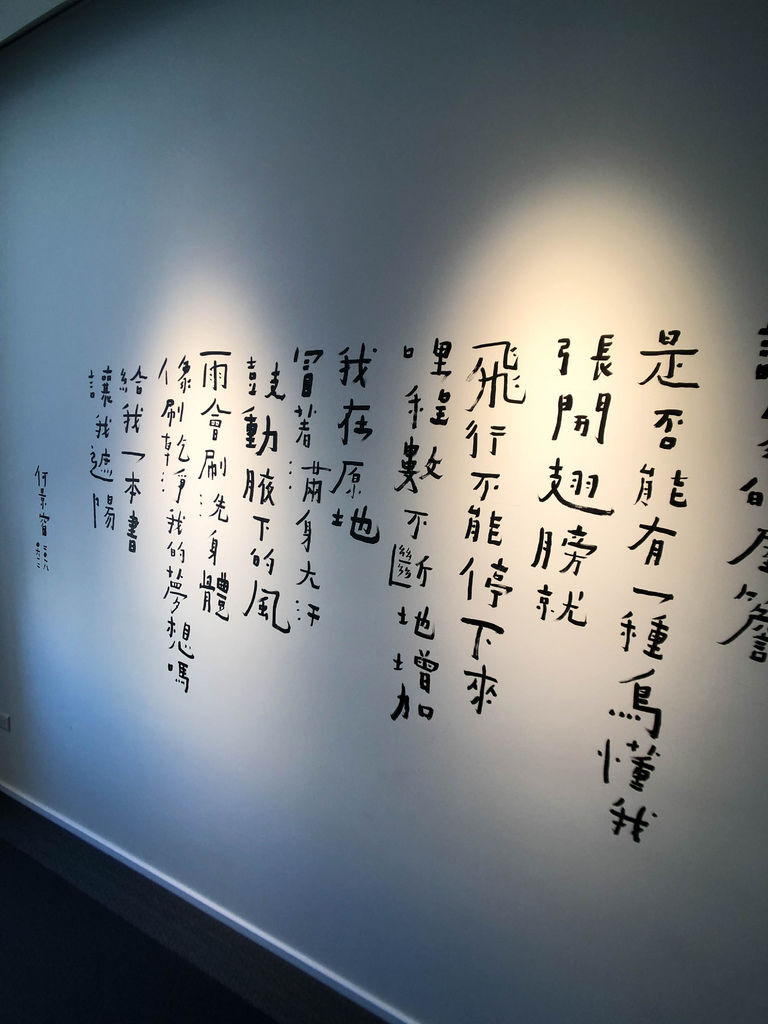 的屋簷
是否能有一種鳥懂我
張開翅膀就
飛行不能停下來
哩程數不斷地增加
我在原地
冒著滿身大汗
鼓動腋下的風
雨會刷洗身體
像刷乾淨我的夢想嗎
給我一本書
讓我遮陽
何景窗